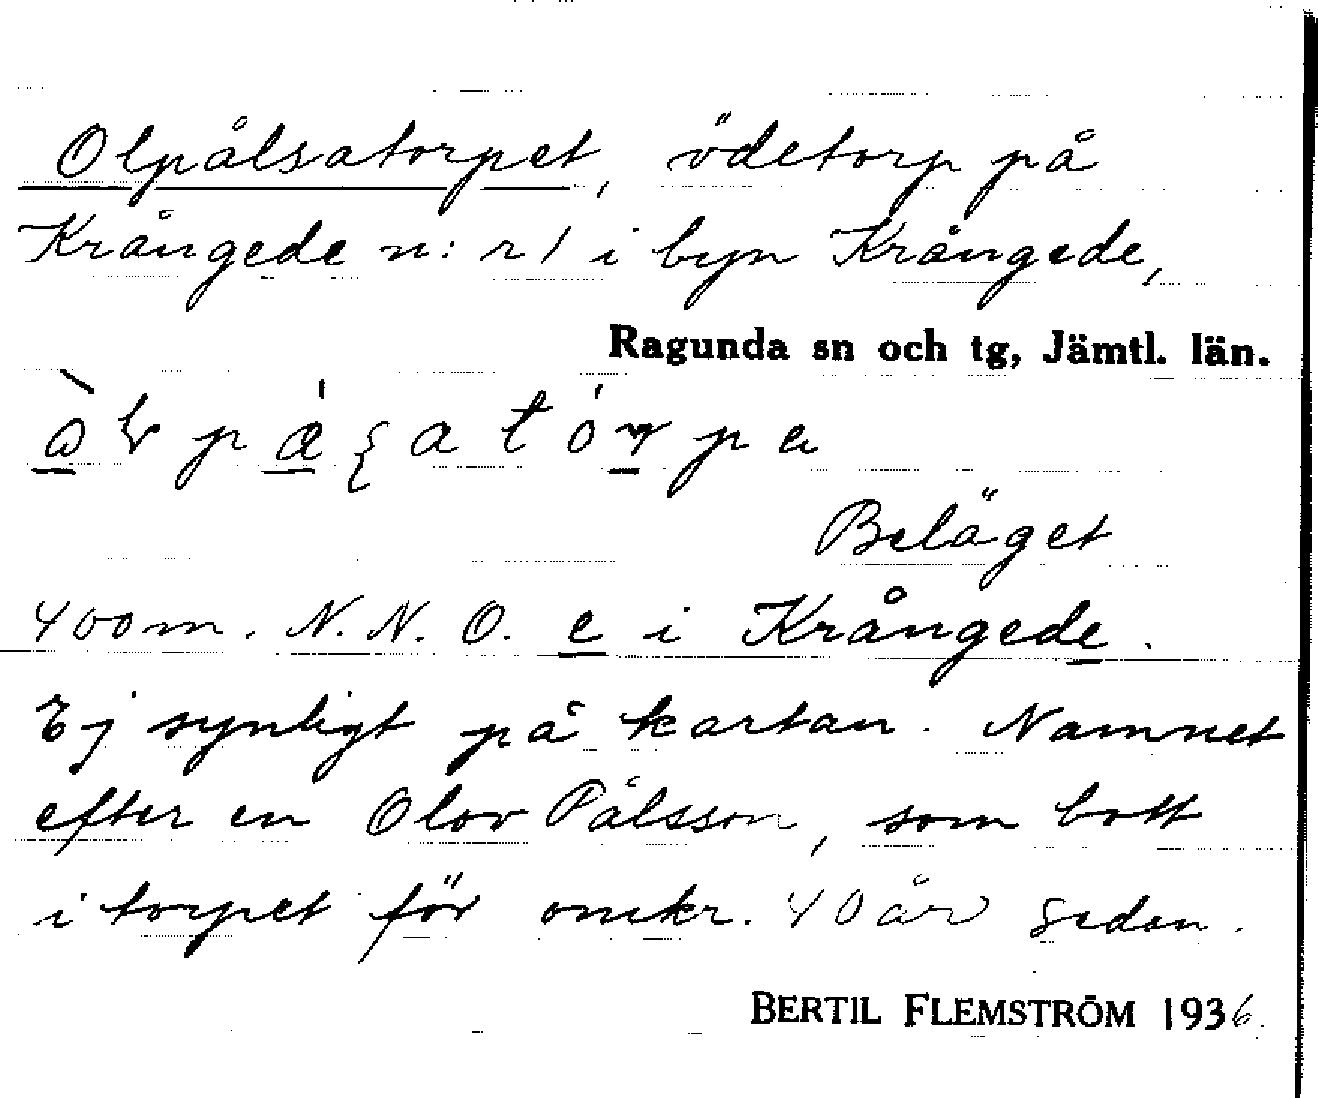 Olpålsatorpet, ödetorp på
Krångede n:r 1 i byn Krångede,
Ragunda sn och tg, Jämtl. län.
Beläget
400 m. N.N.O. e i Krångede.
Ej synligt på kartan. Namnet
efter en Olov Pålsson, som bott
i torpet för omkr. 40 år sedan.
BERTIL FLEMSTRÖM 1936.